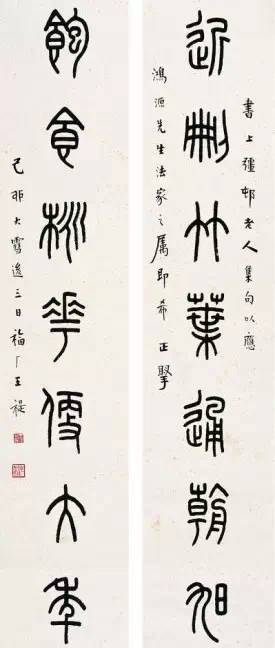 近刪竹葉通朝旭
書上彊邨老人集句以應
鴻源先生法家之属即希正掔
飽食桃華便大年
己卯大雪後三日福厂王禔